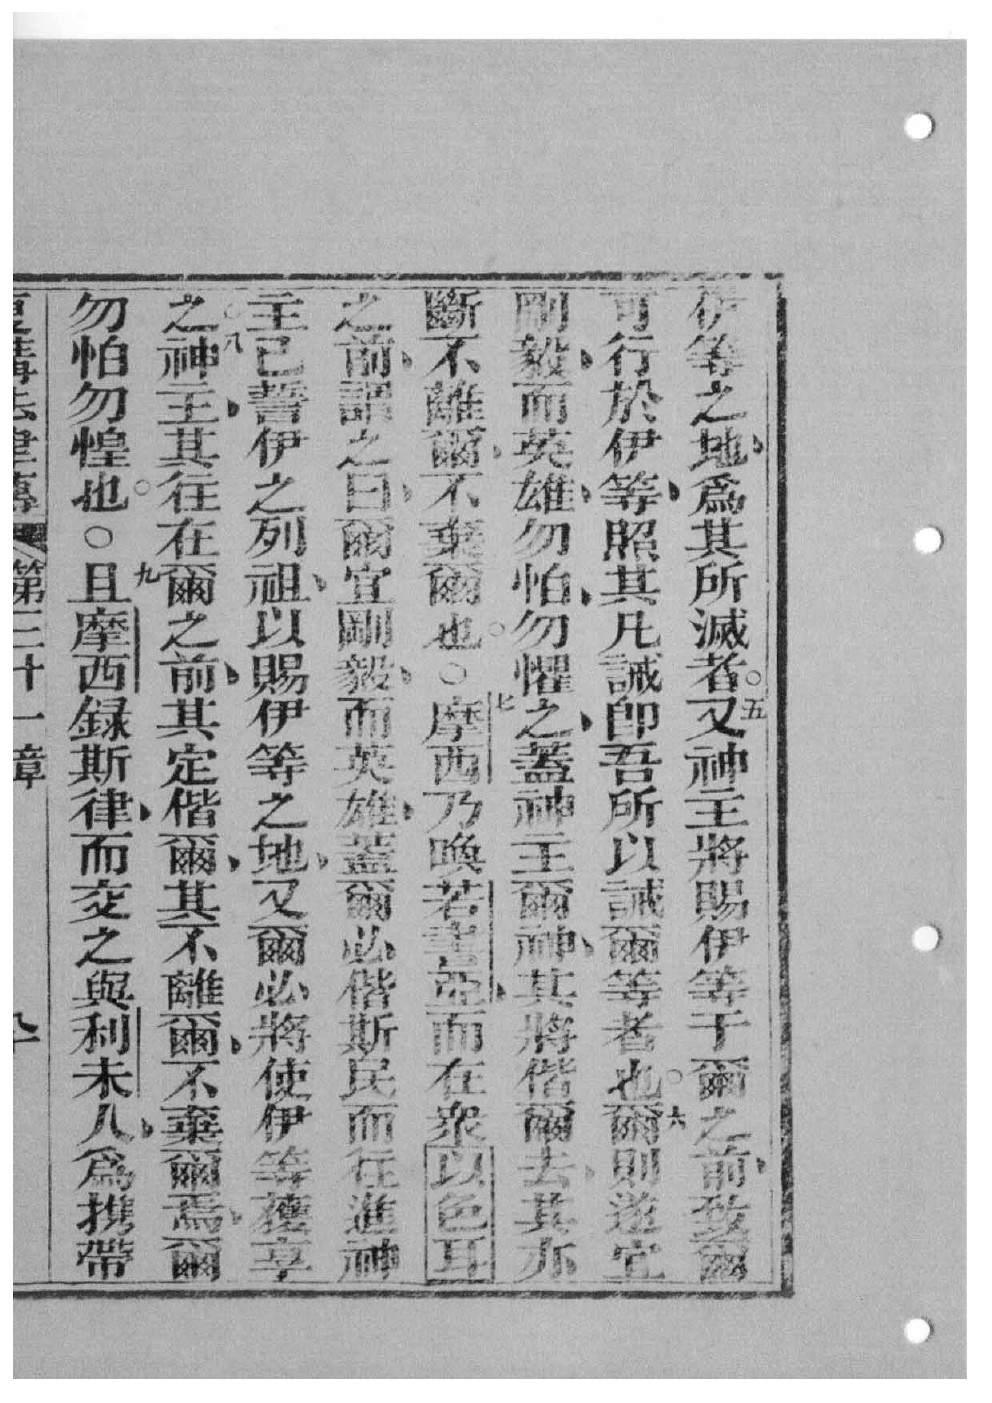 伊等之地爲其所滅者○五又神主將賜伊等于爾之前致爾
可行於伊等照其凡誡卽吾所以誡爾等者也○六爾則遂宜
剛毅而英雄勿怕勿懼之蓋神主爾神其將偕爾去其亦
斷不離爾不棄爾也○○七摩西乃喚若書亞而在衆以色耳
之前謂之曰爾宜剛毅而英雄蓋爾必偕斯民而往進神
主已誓伊之列祖以賜伊等之地又爾必將使伊等獲享
之○八神主其往在爾之前其定偕爾其不離爾不棄爾焉爾
勿怕勿惶也○○九且摩西録斯律而交之與利未人爲携帶
復講法律傳 第三十一章